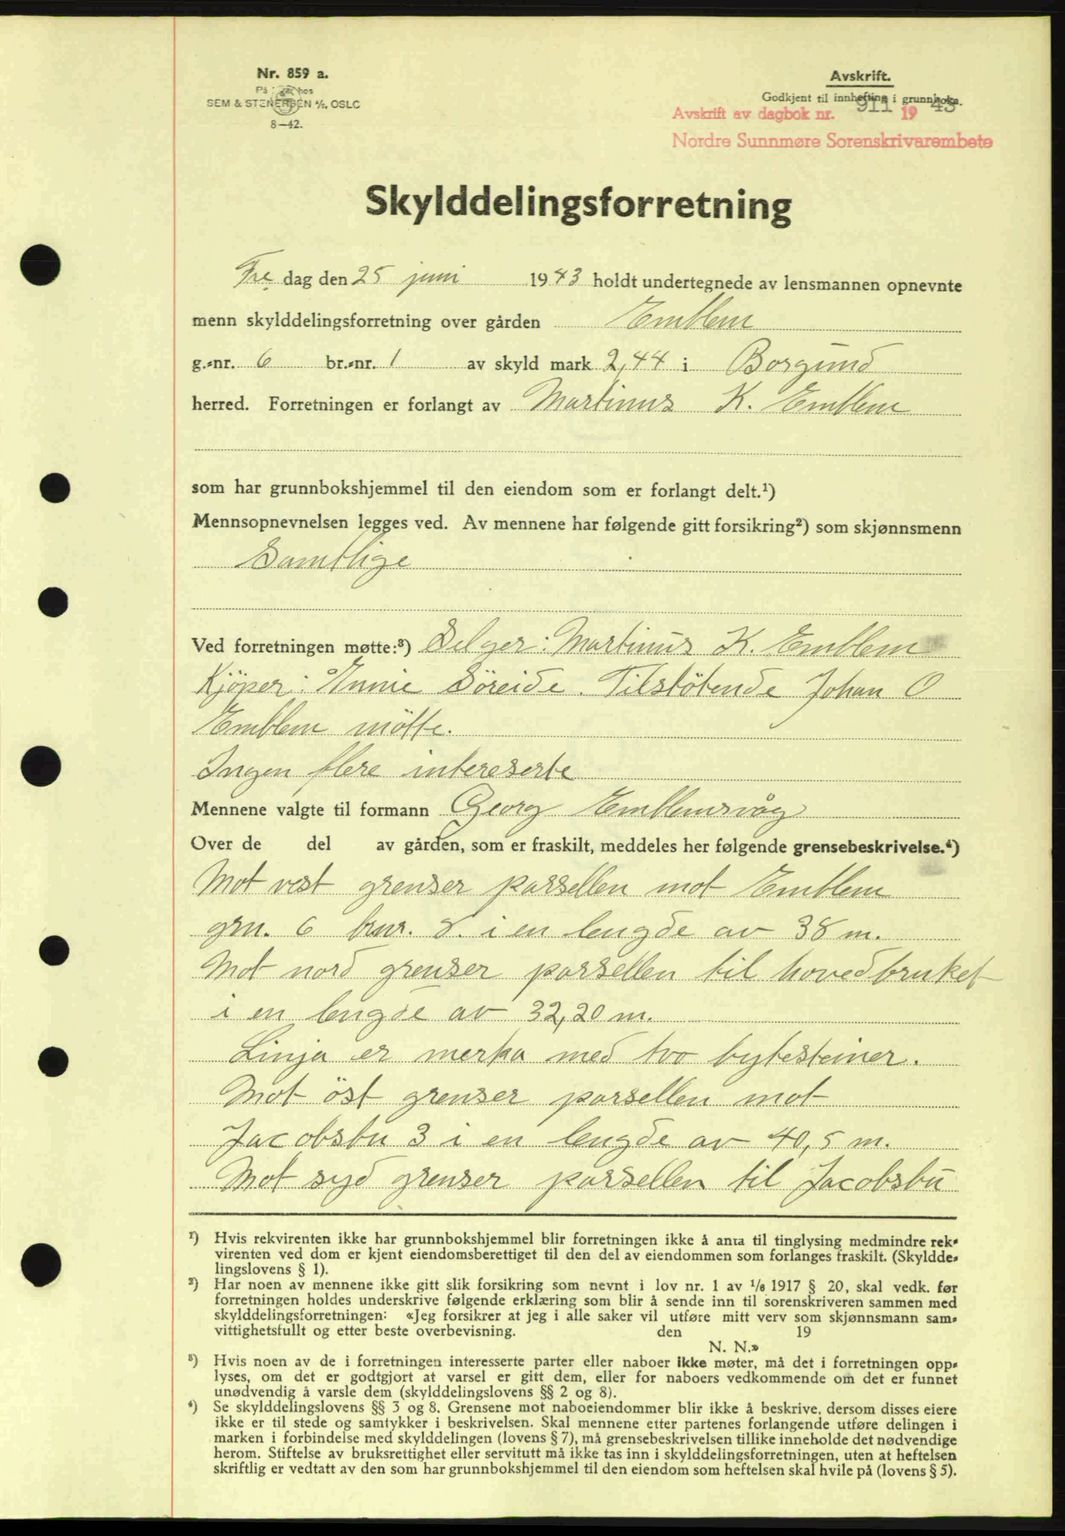 Nr. 859 a.
På hos
SEM & STENERSEN A/S, OSLO
8—42.
Avskrift.
Godkjent til innhefting i grunnboka.
Avskrift av dagbok nr. 911 1943
Nordre Sunnmøre Sorenskrivarembete
Skylddelingsforretning
Fre dag den 25 juni 1943 holdt undertegnede av lensmannen opnevnte
menn skylddelingsforretning over gården Emblem
g.-nr. 6 br.-nr. 1 av skyld mark 2,44 i Borgund
herred. Forretningen er forlangt av Martinus K. Emblem
som har grunnbokshjemmel til den eiendom som er forlangt delt.¹)
Mennsopnevnelsen legges ved. Av mennene har følgende gitt forsikring²) som skjønnsmenn
Samtlige
Ved forretningen møtte:³) Selger: Martinus K. Emblem
Kjöper: Søreide. Tilstötende Johan O
Emblem mötte.
Ingen flere intereserte
Mennene valgte til formann Georg Emblemsvåg
Over de del av gården, som er fraskilt, meddeles her følgende grensebeskrivelse.⁴)
Mot vest grenser parsellen mot Emblem
grn. 6 brnr. 2. i en lengde av 38 m.
Mot nord grenser parsellen til hovedbruket
i en lengde av 32,20 m.
Linja er merka med tvo bytesteiner.
Mot öst grenser parsellen mot
Jacobsbu 3 i en lengde av 40,5 m.
Mot syd grenser parsellen til Jacobsbu
¹) Hvis rekvirenten ikke har grunnbokshjemmel blir forretningen ikke å anta til tinglysing medmindre rek-
virenten ved dom er kjent eiendomsberettiget til den del av eiendommen som forlanges fraskilt. (Skyldde-
lingslovens § 1).
²) Har noen av mennene ikke gitt slik forsikring som nevnt i lov nr. 1 av 1/8 1917 § 20, skal vedk. før
forretningen holdes underskrive følgende erklæring som blir å sende inn til sorenskriveren sammen med
skylddelingsforretningen: «Jeg forsikrer at jeg i alle saker vil utføre mitt verv som skjønnsmann sam-
vittighetsfullt og etter beste overbevisning. den 19
N. N.»
³) Hvis noen av de i forretningen interesserte parter eller naboer ikke møter, må det i forretningen opp-
lyses, om det er godtgjort at varsel er gitt dem, eller for naboers vedkommende om det er funnet
unødvendig å varsle dem (skylddelingslovens §§ 2 og 8).
⁴) Se skylddelingslovens §§ 3 og 8. Grensene mot naboeiendommer blir ikke å beskrive, dersom disses eiere
ikke er til stede og samtykker i beskrivelsen. Skal mennene etter partenes forlangende utføre delingen i
marken i forbindelse med skylddelingen (lovens § 7), må grensebeskrivelsen tillike inneholde det nødvendige
herom. Stiftelse av bruksrettighet eller servitutt må ikke tas inn i skylddelingsforretningen, uten at heftelsen
skriftlig er vedtatt av den som har grunnbokshjemmel til den eiendom som heftelsen skal hvile på (lovens § 5).